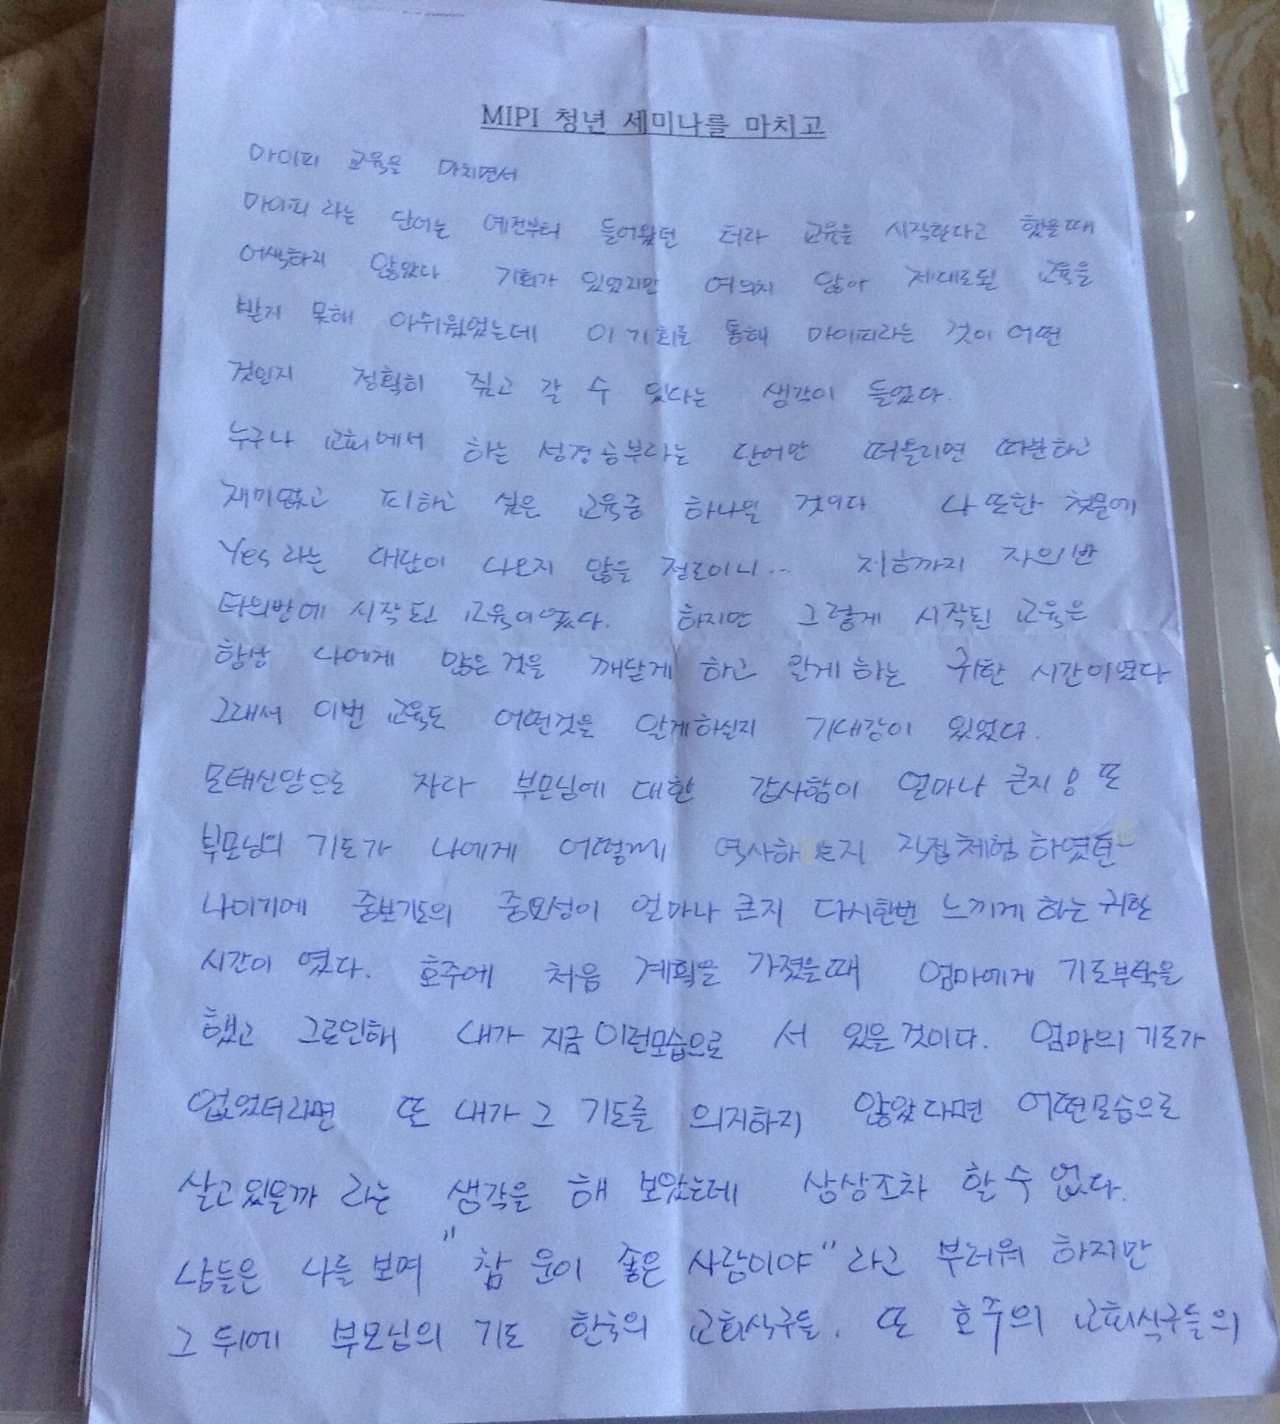 MIPI 청년 세미나를 마치고
마이피 교육을 마치면서
마이피 라는 단어는 예전부터 들어왔던 터라 교육을 시작한다고 했을때
어색하지 않았다. 기회가 있었지만 여의치 않아 제대로된 교육을
받지 못해 아쉬웠었는데 이 기회로 통해 마이피라는 것이 어떤
것인지 정확히 짚고 갈 수 있다는 생각이 들었다.
누구나 교회에서 하는 성경공부라는 단어만 떠올리면 따분하고
재미없고 피하고 싶은 교육중 하나일 것이다. 나 또한 첫물에
Yes 라는 대답이 나오지 않을 정도이니... 지금까지 자의반
타의반에 시작된 교육이였다. 하지만 그렇게 시작된 교육은
항상 나에게 많은 것을 깨닫게 하고 알게 하는 귀한 시간이였다
그래서 이번 교육도 어떤것을 알게하실지 기대감이 있었다.
모태신앙으로 자라 부모님에 대한 감사함이 얼마나 큰지 또
부모님의 기도가 나에게 어떻게 역사하는지 직접체험하였던
나이기에 중보기도의 중요성이 얼마나 큰지 다시한번 느끼게 하는 귀한
시간이 였다. 호주에 처음 계획을 가졌을때 엄마에게 기도부탁을
했고 그로인해 내가 지금 이런모습으로 서 있을 것이다. 엄마의 기도가
없었더라면 또 내가 그 기도를 의지하지 않았다면 어떤모습으로
살고있을까 라는 생각을 해 보았는데 상상조차 할 수 없다.
남들은 나를 보며 "참 운이 좋은 사람이야" 라고 부러워 하지만
그 뒤에 부모님의 기도 한국의 교회식구들, 또 호주의 교회식구들의